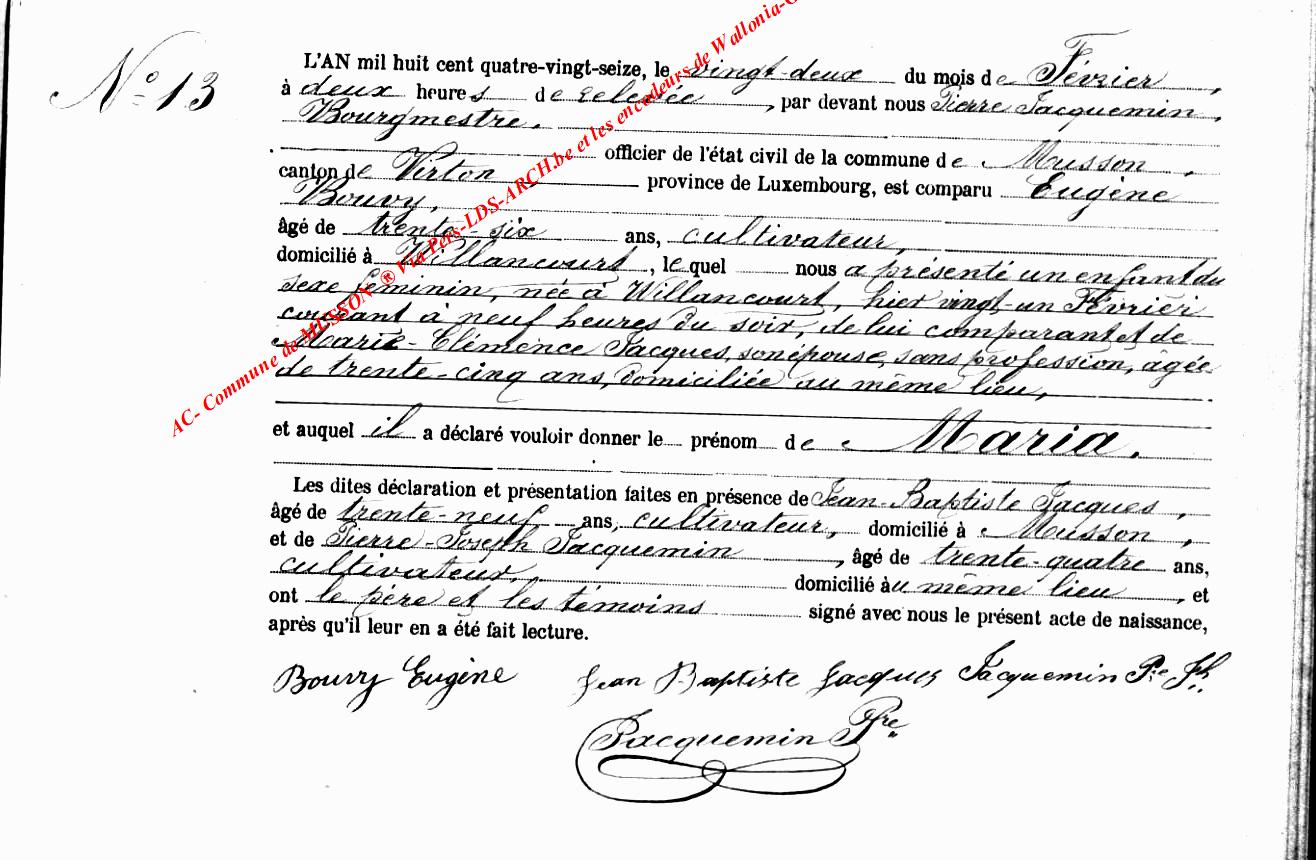 N° 13
L'AN mil huit cent quatre-vingt-seize, le vingt-deux du mois de Février,
à deux heures de relevée, par devant nous Pierre Jacquemin,
Bourgmestre.
officier de l'état civil de la commune de Musson,
canton de Virton province de Luxembourg, est comparu Eugène
Bouvy,
âgé de trente-six ans, cultivateur,
domicilié à Willancourt, lequel nous a présenté un enfant du
sexe féminin, née à Willancourt, hier vingt-un Février
courant à neuf heures du soir, de lui comparant et de
Marie-Clémence Jacques, son épouse, sans profession, âgée
de trente-cinq ans, domiciliée au même lieu,
et auquel il a déclaré vouloir donner le prénom de Maria.
Les dites déclaration et présentation faites en présence de Jean-Baptiste Jacques,
âgé de trente-neuf ans, cultivateur, domicilié à Musson,
et de Pierre-Joseph Jacquemin, âgé de trente-quatre ans,
cultivateur, domicilié au même lieu, et
ont le père et les témoins signé avec nous le présent acte de naissance,
après qu'il leur en a été fait lecture.
Bouvy Eugène Jean Baptiste Jacques Jacquemin Pre Jh.
Jacquemin Pre
AC- Commune de MUSSON ® Via Pers-LDS-ARCH.be et les encodeurs de Wallonia-